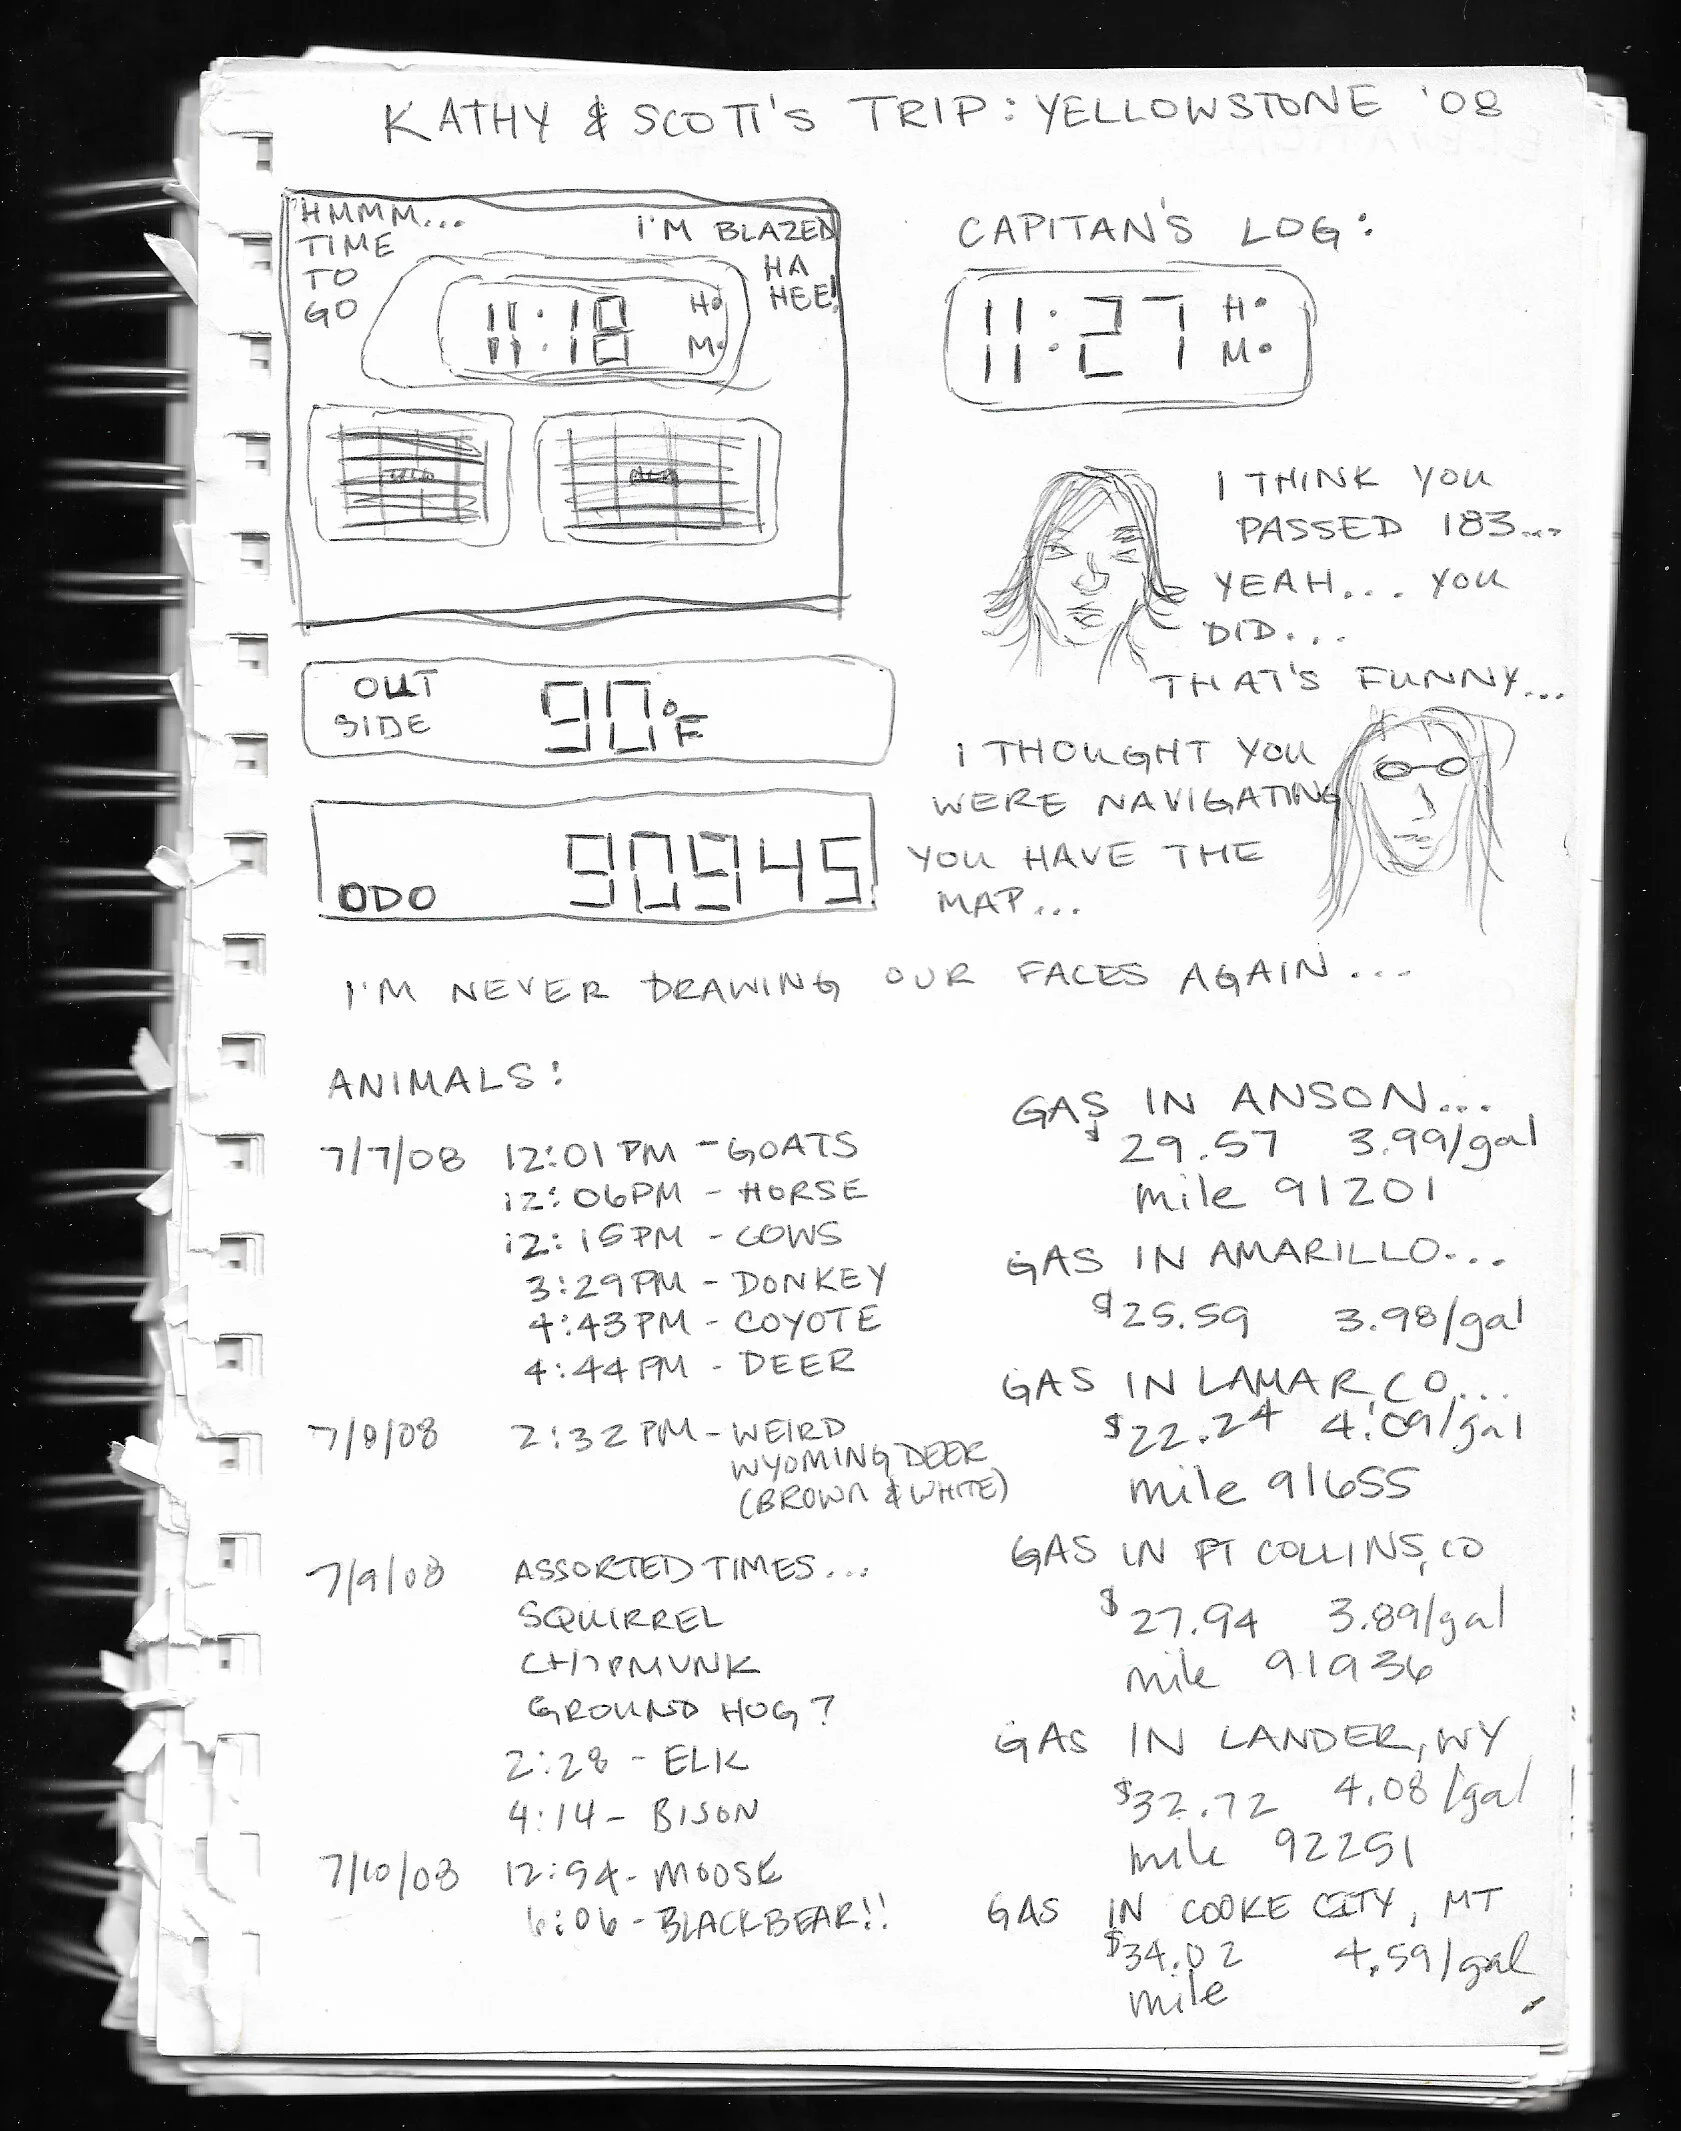 KATHY & SCOTT'S TRIP: YELLOWSTONE '08
HMMM...
TIME
TO
GO
I'M BLAZED
HA
HEE!
11:18
H
M
OUT
SIDE
90°F
ODO
90945
CAPITAN'S LOG:
11:27
H
M
I THINK YOU
PASSED 183...
YEAH... YOU
DID...
THAT'S FUNNY...
I THOUGHT YOU
WERE NAVIGATING
YOU HAVE THE
MAP...
I'M NEVER DRAWING OUR FACES AGAIN...
ANIMALS:
7/7/08 12:01 PM - GOATS
12:06PM - HORSE
12:15PM - COWS
3:29PM - DONKEY
4:43PM - COYOTE
4:44PM - DEER
7/8/08 2:32PM - WEIRD
WYOMING DEER
(BROWN & WHITE)
7/9/08 ASSORTED TIMES...
SQUIRREL
CHIPMUNK
GROUND HOG?
2:28 - ELK
4:14 - BISON
7/10/08 12:54 - MOOSE
6:06 - BLACKBEAR!!
GAS IN ANSON...
$29.57 3.99/gal
mile 91201
GAS IN AMARILLO...
$25.59 3.98/gal
GAS IN LAMAR, CO...
$22.24 4.09/gal
mile 91655
GAS IN FT COLLINS, CO
$27.94 3.89/gal
mile 91936
GAS IN LANDER, WY
$32.72 4.08/gal
mile 92251
GAS IN COOKE CITY, MT
$34.02 4.59/gal
mile